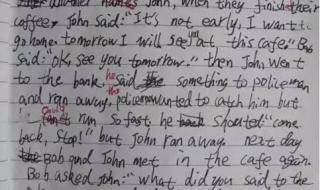 another names John, when they finish their
coffee, John said: "It's not early, I want to
go home. tomorrow I will see you at this cafe." Bob
said: "ok, see you tomorrow." then John went
to the bank he said something to policeman
and ran away. the policeman wanted to catch him but
can't run so fast he shouted "come
back, stop!" but John ran away. next day
Bob and John met in the cafe again.
Bob asked John: "what did you said to the